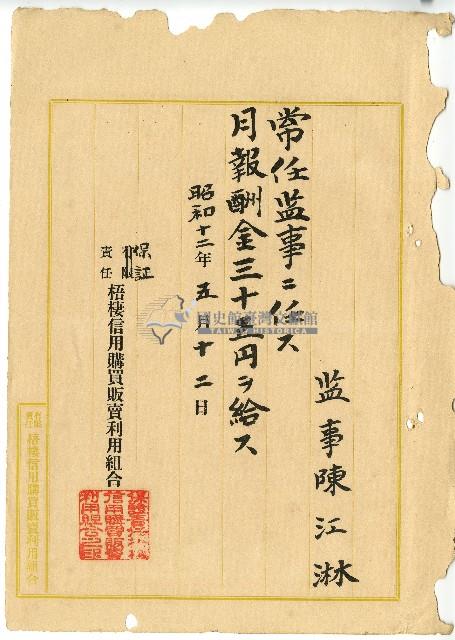 監事陳江淋
常任監事ニ任ス
月報酬金三十五円ヲ給ス
昭和十二年五月十二日
保証
責任
梧棲信用購買販賣利用組合
有限
責任
梧棲信用購買販賣利用組合
國史館臺灣文獻館
TAIWAN HISTORICA